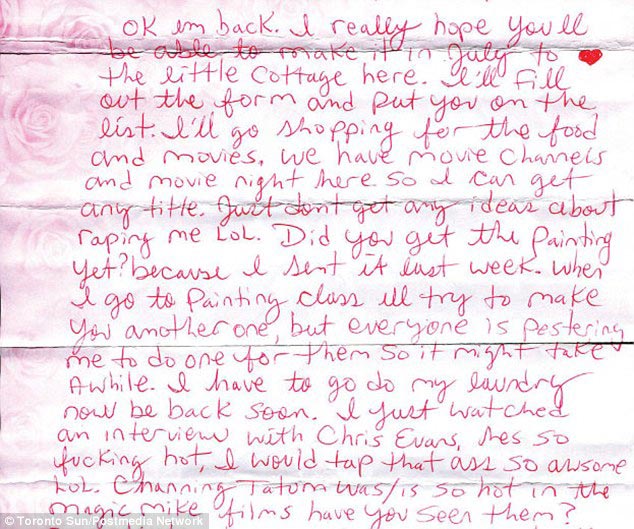 OK im back. I really hope you'll
be able to make it in July to
the little cottage here. I'll fill
out the form and put you on the
list. I'll go shopping for the food
and movies, we have movie channels
and movie night here so I can get
any title. Just dont get any ideas about
raping me LoL. Did you get the painting
yet? because I sent it last week. When
I go to Painting class ill try to make
you another one, but everyone is pestering
me to do one for them so it might take
Awhile. I have to go do my laundry
now be back soon. I just watched
an interview with Chris Evans, hes so
fucking hot, I would tap that ass so awsome
LoL. Channing Tatum was/is so hot in the
magic mike films have you seen them?
© Toronto Sun/Postmedia Network